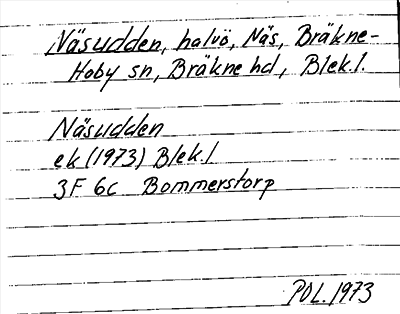 Näsudden, halvö, Näs, Bräkne-
Hoby sn, Bräkne hd, Blek. l.
Näsudden
ek (1973) Blek. l
3F 6c Bommerstorp
POL. 1973